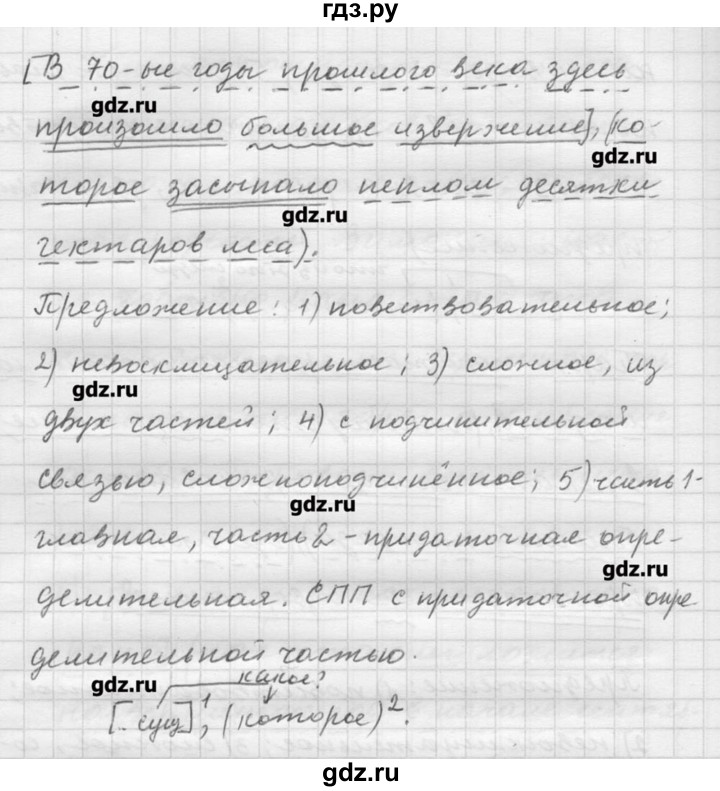 гдз.ру
[В 70-ые годы прошлого века здесь
gdz.ru
произошло большое извержение], (ко-
gdz.ru
торое засыпало пеплом десятки
gdz.ru
гектаров леса).
Предложение: 1) повествовательное;
2) невосклицательное; 3) сложное, из
gdz.ru
двух частей; 4) с подчинительной
связью, сложноподчинённое; 5) часть 1-
gdz.ru
главная, часть 2 - придаточная опре-
gdz.ru
делительная. СПП с придаточной опре
делительной частью.
gdz.ru
какое?
[. сущ]¹, (которое)².
gdz.ru